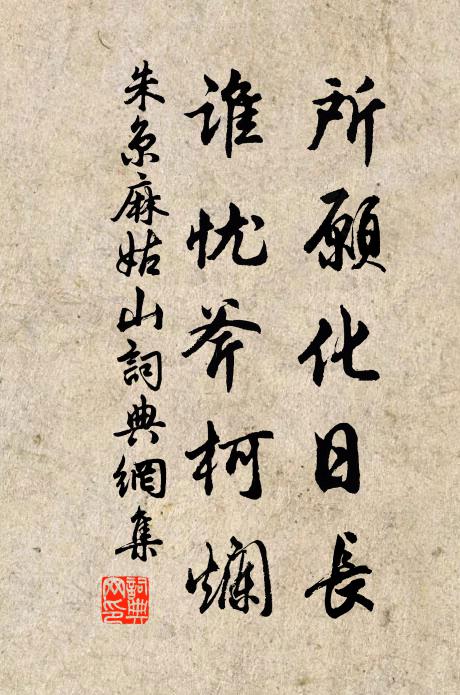 所願化日長
誰忧斧柯爛
朱京麻姑山詞典網集
詞典網印